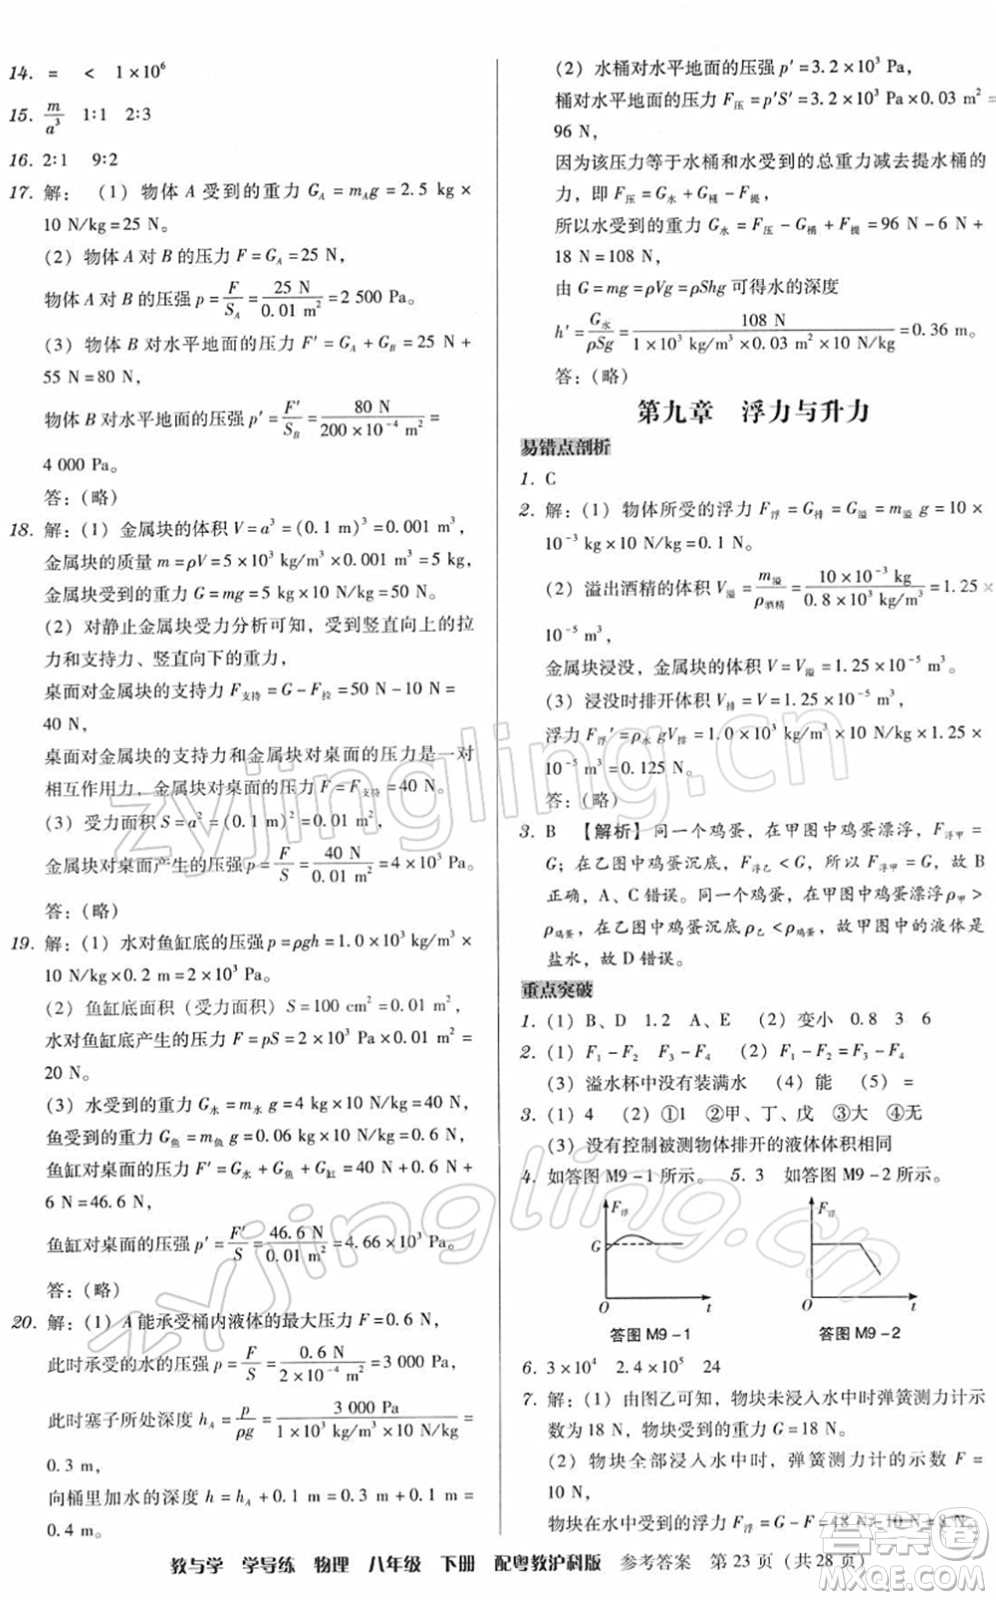 14. = < 1×10⁶
15. m/a³ 1∶1 2∶3
16. 2∶1 9∶2
17. 解：(1) 物体 A 受到的重力 G_A = m_A g = 2.5 kg ×
10 N/kg = 25 N。
(2) 物体 A 对 B 的压力 F = G_A = 25 N，
物体 A 对 B 的压强 p = F/S_A = 25 N/0.01 m² = 2 500 Pa。
(3) 物体 B 对水平地面的压力 F′ = G_A + G_B = 25 N +
55 N = 80 N，
物体 B 对水平地面的压强 p′ = F′/S_B = 80 N/200×10⁻⁴ m² =
4 000 Pa。
答：(略)
18. 解：(1) 金属块的体积 V = a³ = (0.1 m)³ = 0.001 m³，
金属块的质量 m = ρV = 5×10³ kg/m³×0.001 m³ = 5 kg，
金属块受到的重力 G = mg = 5 kg×10 N/kg = 50 N。
(2) 对静止金属块受力分析可知，受到竖直向上的拉
力和支持力、竖直向下的重力，
桌面对金属块的支持力 F支持 = G − F拉 = 50 N − 10 N =
40 N，
桌面对金属块的支持力和金属块对桌面的压力是一对
相互作用力，金属块对桌面的压力 F = F支持 = 40 N。
(3) 受力面积 S = a² = (0.1 m)² = 0.01 m²，
金属块对桌面产生的压强 p = F/S = 40 N/0.01 m² = 4×10³ Pa。
答：(略)
19. 解：(1) 水对鱼缸底的压强 p = ρgh = 1.0×10³ kg/m³×
10 N/kg×0.2 m = 2×10³ Pa。
(2) 鱼缸底面积（受力面积）S = 100 cm² = 0.01 m²，
水对鱼缸底产生的压力 F = pS = 2×10³ Pa×0.01 m² =
20 N。
(3) 水受到的重力 G水 = m水 g = 4 kg×10 N/kg = 40 N，
鱼受到的重力 G鱼 = m鱼 g = 0.06 kg×10 N/kg = 0.6 N，
鱼缸对桌面的压力 F′ = G水 + G鱼 + G缸 = 40 N + 0.6 N +
6 N = 46.6 N，
鱼缸对桌面的压强 p′ = F′/S = 46.6 N/0.01 m² = 4.66×10³ Pa。
答：(略)
20. 解：(1) A 能承受桶内液体的最大压力 F = 0.6 N，
此时承受的水的压强 p = F/S = 0.6 N/2×10⁻⁴ m² = 3 000 Pa，
此时塞子所处深度 h_A = p/ρg = 3 000 Pa/1×10³ kg/m³×10 N/kg =
0.3 m，
向桶里加水的深度 h = h_A + 0.1 m = 0.3 m + 0.1 m =
0.4 m。
(2) 水桶对水平地面的压强 p′ = 3.2×10³ Pa，
桶对水平地面的压力 F压 = p′S′ = 3.2×10³ Pa×0.03 m² =
96 N，
因为该压力等于水桶和水受到的总重力减去提水桶的
力，即 F压 = G水 + G桶 − F提，
所以水受到的重力 G水 = F压 − G桶 + F提 = 96 N − 6 N +
18 N = 108 N，
由 G = mg = ρVg = ρShg 可得水的深度
h′ = G水/ρSg = 108 N/1×10³ kg/m³×0.03 m²×10 N/kg = 0.36 m。
答：(略)
第九章 浮力与升力
易错点剖析
1. C
2. 解：(1) 物体所受的浮力 F浮 = G排 = G溢 = m溢 g = 10×
10⁻³ kg×10 N/kg = 0.1 N。
(2) 溢出酒精的体积 V溢 = m溢/ρ酒精 = 10×10⁻³ kg/0.8×10³ kg/m³ = 1.25×
10⁻⁵ m³，
金属块浸没，金属块的体积 V = V溢 = 1.25×10⁻⁵ m³。
(3) 浸没时排开体积 V排 = V = 1.25×10⁻⁵ m³，
浮力 F浮′ = ρ水 gV排 = 1.0×10³ kg/m³×10 N/kg×1.25×
10⁻⁵ m³ = 0.125 N。
答：(略)
3. B 【解析】同一个鸡蛋，在甲图中鸡蛋漂浮，F浮甲 =
G；在乙图中鸡蛋沉底，F浮乙 < G，所以 F浮甲 > F浮乙，故 B
正确，A、C 错误。同一个鸡蛋，在甲图中鸡蛋漂浮 ρ甲 >
ρ鸡蛋，在乙图中鸡蛋沉底 ρ乙 < ρ鸡蛋，故甲图中的液体是
盐水，故 D 错误。
重点突破
1. (1) B、D 1.2 A、E (2) 变小 0.8 3 6
2. (1) F₁−F₂ F₃−F₄ (2) F₁−F₂ = F₃−F₄
(3) 溢水杯中没有装满水 (4) 能 (5) =
3. (1) 4 (2) ①1 ②甲、丁、戊 ③大 ④无关
(3) 没有控制被测物体排开的液体体积相同
4. 如答图 M9－1 所示。 5. 3 如答图 M9－2 所示。
F浮 F浮
G
O t O t
答图 M9－1 答图 M9－2
6. 3×10⁴ 2.4×10⁵ 24
7. 解：(1) 由图乙可知，物块未浸入水中时弹簧测力计示
数为 18 N，物块受到的重力 G = 18 N。
(2) 物块全部浸入水中时，弹簧测力计的示数 F =
10 N，
物块在水中受到的浮力 F浮 = G − F = 18 N − 10 N = 8 N。
教与学 学导练 物理 八年级 下册 配粤教沪科版 参考答案 第 23 页（共 28 页）
zyjingling.cn
zyjingling.cn
作业精灵